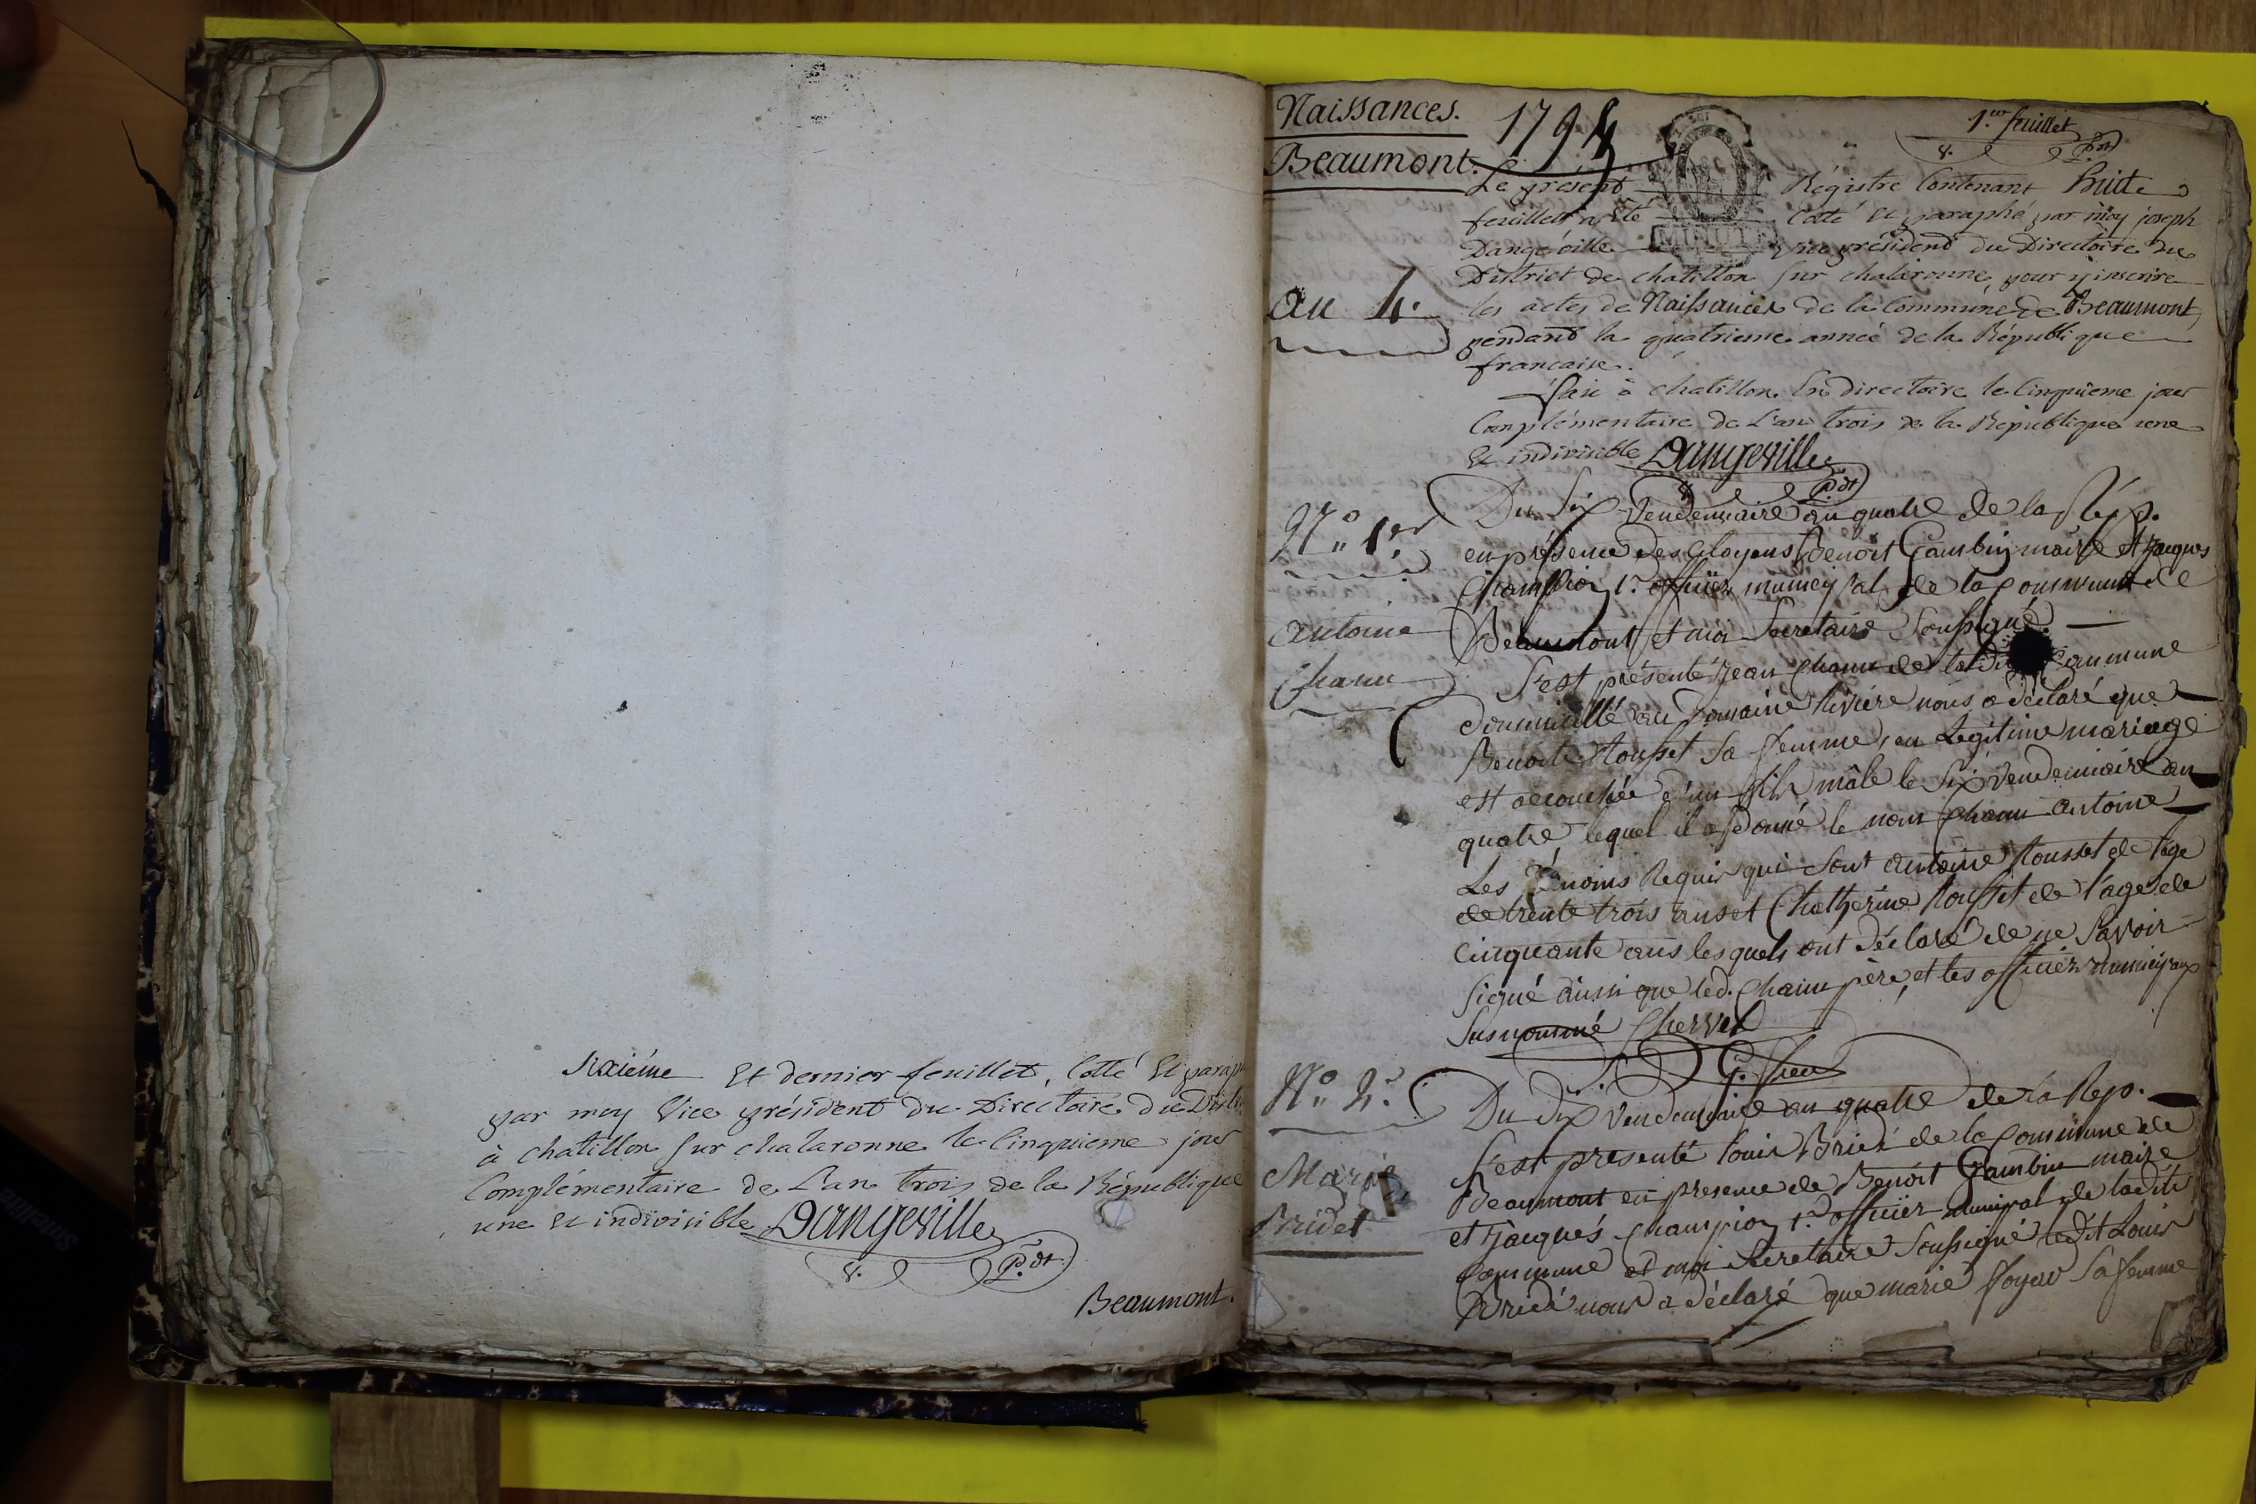 Sixiéme et dernier feuillet, Cotté et parap
par moy Vice président du Directoire du Distr
à chatillon sur chalaronne le Cinquieme jour
Complémentaire de L'an trois de la République
une et indivisible Dangeville
8. P.dt
Beaumont.
Naissances. 179
1.er feuillet
8. P.dt
Beaumont.
Le présent Régistre Contenant huit
feuillets a été Cotté et paraphé par moy joseph
Dangeville vice président du Directoire du
District de chatillon sur chalaronne, pour y inscrire
an 4.
les actes de Naissances de la Commune de Beaumont,
pendant la quatrieme année de la République
francaise.
Fait à chatillon En directoire le Cinquieme jour
Complémentaire de L'an trois de la République une
et indivisible Dangeville
8. P.dt
N.o 1.er
Du Six Vendemiaire an quatre de la Rép.
en présence des Citoyens Benoit Gambin maire et Jacques
Champion 1.r officier municipal de la Commune de
antoine
Beaumont et moi Secretaire Soussigné.
Chanu
S'est présenté Jean Chanu de la dite Commune
domicillié au Domaine Riviere nous a déclaré que
Benoite Rousset sa femme, en Legitime mariage
est accouchée d'un fils mâle le Six Vendemiaire an
quatre, lequel il a donné le nom Chanu antoine
Les Témoins Requis qui sont antoine Rousset de l'age
de trente trois ans et Chatherine Rousset de l'age de
cinquante ans lesquels ont déclaré de ne Savoir
signé ainsi que led. Chanu père, et les officiers municipaux
Susnommé Chervet
G. Sien
N.o 2.e
Du dix Vendemiaire an quatre de la Rep.
S'est presenté Louis Bridé de la Commune de
Marie
Beaumont en presence de Benoit Gambin maire
Bridet
et Jacques Champion 1.r officier municipal de la dite
Commune et moi Secretaire Soussigné ledit Louis
Bridé nous a déclaré que marie sa femme